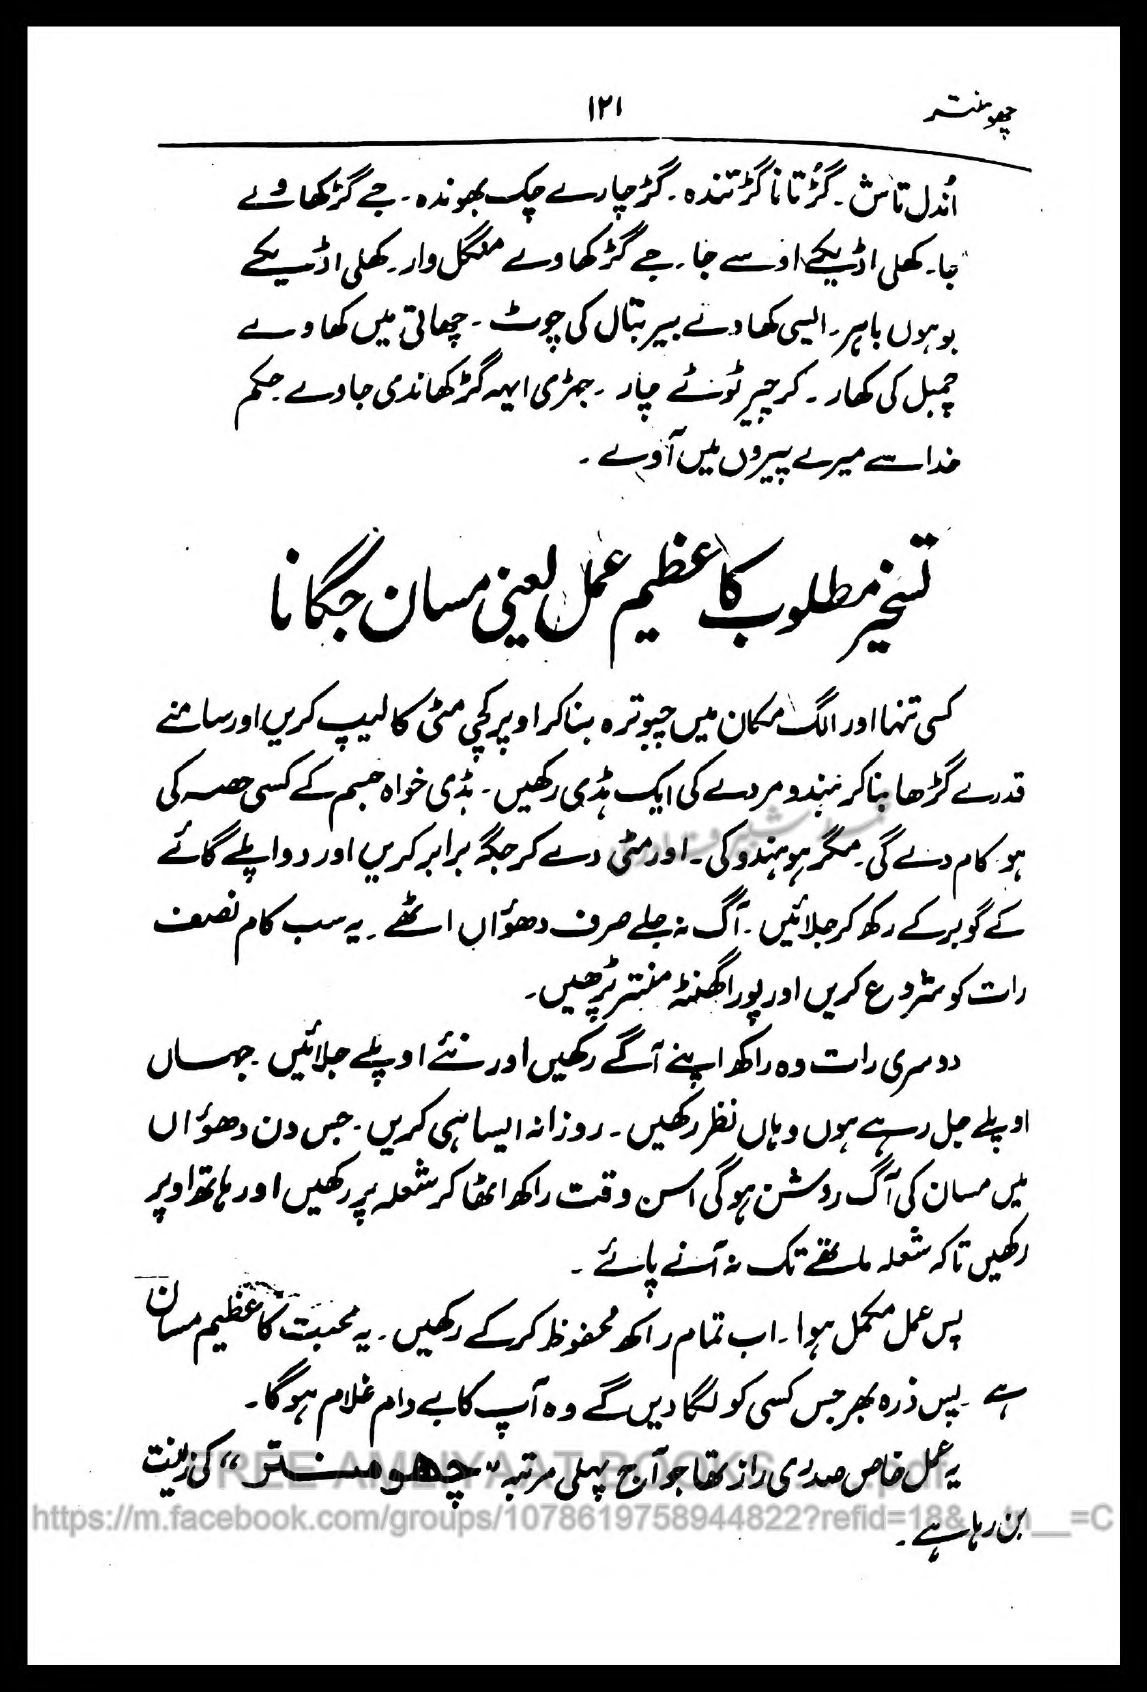 چھو منتر
۱۲۱
اُندل تاش ۔ گُڑ تانا گڑ تندہ ۔ گڑ چارے چک بھوندہ ۔ جے گڑ کھاوے
جا۔ کھلی اڈیکے اوسے جا ۔ جے گڑ کھاوے منگل وار ۔ کھلی اڈیکے
بوہوں باہر ۔ ایسی کھاوے بیر بتال کی چوٹ ۔ چھاتی میں کھاوے
چمبل کی کھار ۔ کرچپر ٹوٹے چار ۔ جہڑی ایہہ گڑ کھاندی جاوے حکم
خدا سے میرے پیروں میں آوے ۔
تسخیر مطلوب کا عظیم عمل یعنی مسان جگانا
کسی تنہا اور الگ مکان میں چبوترہ بنا کر اوپر کچی مٹی کا لیپ کریں اور سامنے
قدرے گڑھا بنا کر ہندو مردے کی ایک ہڈی رکھیں ۔ ہڈی خواہ جسم کے کسی حصہ کی
ہو کام دے گی ۔ مگر ہو ہندو کی ۔ اور مٹی دے کر جگہ برابر کریں اور دو اپلے گائے
کے گوبر کے رکھ کر جلائیں ۔ آگ نہ جلے صرف دھوُاں اٹھے ۔ یہ سب کام نصف
رات کو شروع کریں اور پورا گھنٹہ منتر پڑھیں ۔
دوسری رات وہ راکھ اپنے آگے رکھیں اور نئے اوپلے جلائیں ۔ جہاں
اوپلے جل رہے ہوں وہاں نظر رکھیں ۔ روزانہ ایسا ہی کریں ۔ جس دن دھوُاں
میں مسان کی آگ روشن ہو گی اسی وقت راکھ اٹھا کر شعلہ پر رکھیں اور ہاتھ اوپر
رکھیں تاکہ شعلہ ماتھے تک نہ آنے پائے ۔
پس عمل مکمل ہوا ۔ اب تمام راکھ محفوظ کر کے رکھیں ۔ یہ محبت کا عظیم مسان
ہے ۔ پس ذرہ بھر جس کسی کو لگا دیں گے وہ آپ کا بے دام غلام ہو گا ۔
یہ عمل خاص صدری راز تھا جو آج پہلی مرتبہ "چھو منتر" کی زینت
بن رہا ہے ۔
FREE AMLIYAAT BOOKS pdf
https://m.facebook.com/groups/1078619758944822?refid=18&__tn__=C